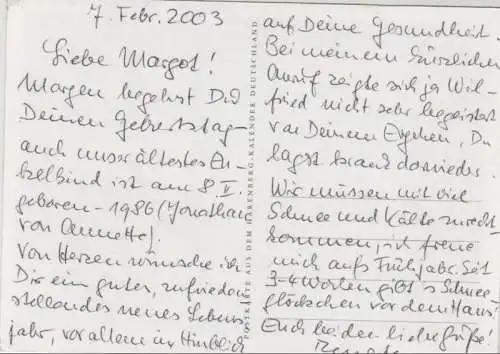 7. Febr. 2003
Liebe Margot!
Morgen begehst Du
Deinen Geburtstag -
auch unser ältestes En-
kelkind ist am 8. II.
geboren - 1986 (Jonathan
von Annette).
Von Herzen wünsche ich
Dir ein gutes, zufrieden
stellendes neues Lebens-
jahr, vor allem im Hinblick
POSTKARTE AUS DEM HARENBERG-KALENDER DEUTSCHLAND
auf Deine Gesundheit.
Bei meinem kürzlichen
Anruf zeigte sich ja Wil-
fried nicht sehr begeistert
von Deinem Ergehen, Du
lagst krank darnieder.
Wir müssen mit viel
Schnee und Kälte zurecht-
kommen, ich freue
mich aufs Frühjahr. Seit
3-4 Wochen gibt's Schnee-
glöckchen vor dem Haus!
Euch beiden liebe Grüße!